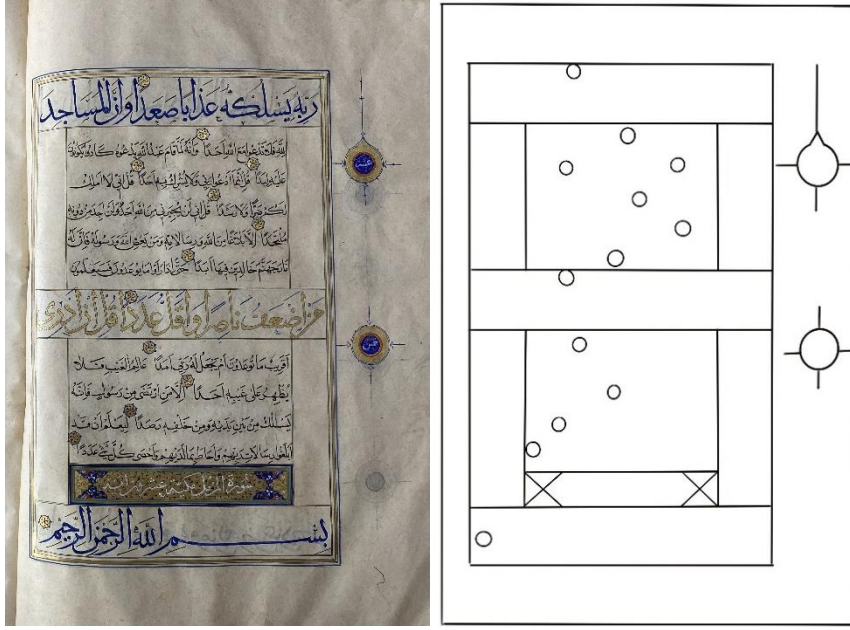 ربه يسلكه عذابا صعدا وان المساجد
لله فلا تدعوا مع الله احدا وانه لما قام عبد الله يدعوه كادوا يكونون
عليه لبدا قل انما ادعوا ربي ولا اشرك به احدا قل اني لا املك
لكم ضرا ولا رشدا قل اني لن يجيرني من الله احد ولن اجد من دونه
ملتحدا الا بلاغا من الله ورسالاته ومن يعص الله ورسوله فان له
نار جهنم خالدين فيها ابدا حتى اذا راوا ما يوعدون فسيعلمون
من اضعف ناصرا واقل عددا قل ان ادري
اقريب ما توعدون ام يجعل له ربي امدا عالم الغيب فلا
يظهر على غيبه احدا الا من ارتضى من رسول فانه
يسلك من بين يديه ومن خلفه رصدا ليعلم ان قد
ابلغوا رسالات ربهم واحاط بما لديهم واحصى كل شيء عددا
سورة المزمل مكية عشرون اية
بسم الله الرحمن الرحيم
عشر
خمس